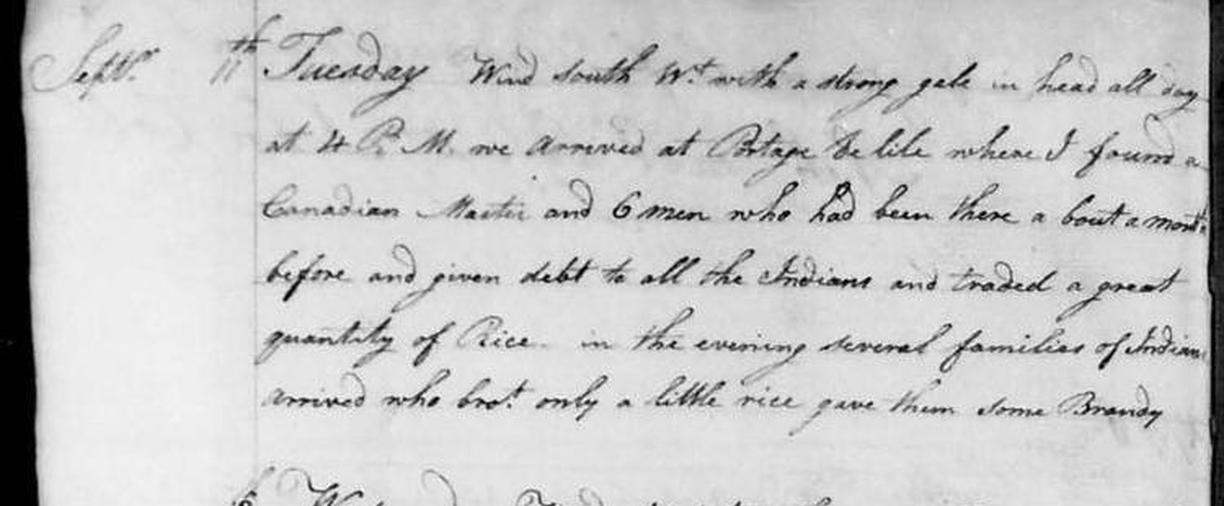 Septr. 11th Tuesday Wind south Wt. with a strong gale in head all day
at 4 P. M. we arrived at Portage De lile where I found a
Canadian Master and 6 men who had been there a bout a month
before and given debt to all the Indians and traded a great
quantity of Rice. in the evening several families of Indians
arrived who brot. only a little rice gave them some Brandy